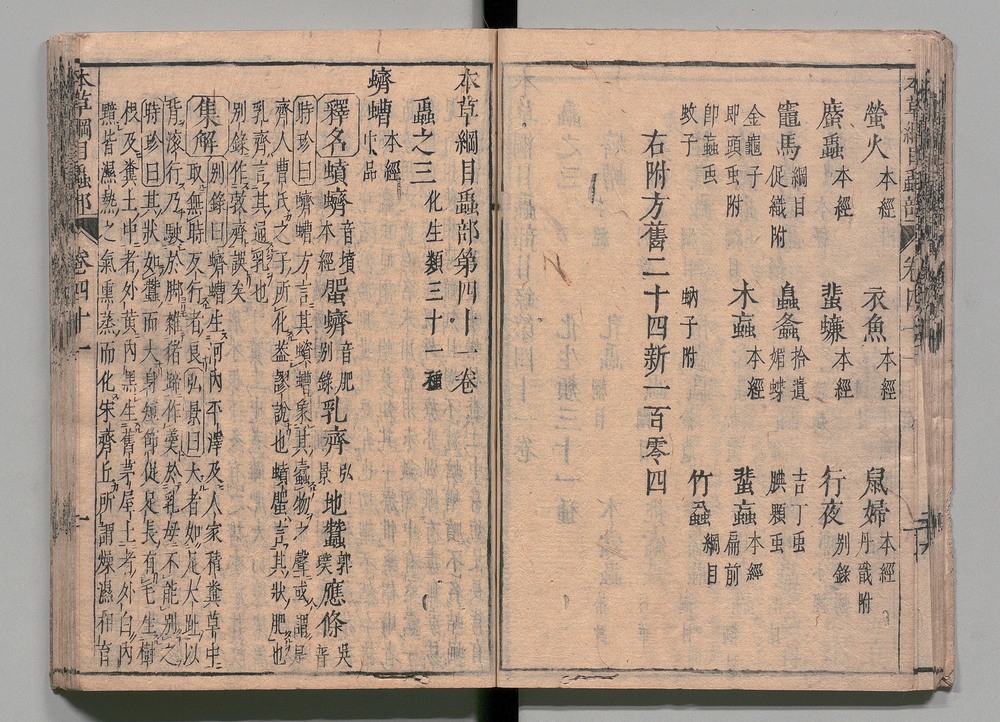 螢火 本經 衣魚 本經 鼠婦 本經 丹戩附
䗪蟲 本經 蜚蠊 本經 行夜 別錄
竈馬 綱目 促織附 𧒂螽 拾遺 媚蝶 吉丁虫 腆顆虫
金龜子 即頭虫附 木蝱 本經 蜚蝱 本經 扁前
即蝱虫 蚊子 蚋子附 竹蝨 綱目
右附方舊二十四新一百零四
本草綱目蟲部第四十一卷
蟲之三 化生類三十一種
蠐螬 本經中品
釋名蟦蠐 音墳本經 𧓉蠐 音肥別錄 乳齊 弘景 地蠶 郭璞 應條 吳普
時珍曰蠐螬方言其蠐螬象其蠹物之聲或謂是
齊人曹氏之子所化蓋謬說也蟦𧓉言其狀肥也
乳齊言其通乳也
別錄作蠐齊誤矣
集解 別錄曰蠐螬生河內平澤及人家積糞草中
取無時反行者良弘景曰大者如足大趾以
背滾行乃駛於脚雜豬蹄作羹於乳母不能別之
時珍曰其狀如蠶而大身短節促足長有毛生樹
根及糞土中者外黃內黑生舊茅屋上者外白內
黯皆濕熱之氣熏蒸而化宋齊丘所謂燥濕相育
本草綱目蟲部 卷四十一 一